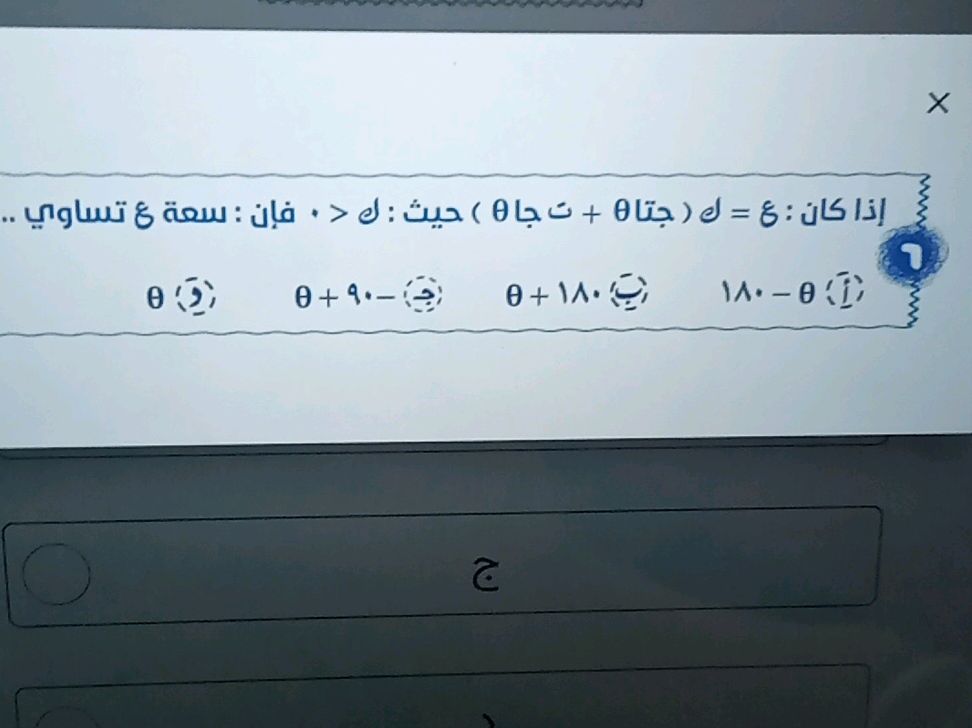 ×
٦ إذا كان : ع = ك ( جتا θ + ت جا θ ) حيث : ك < ٠ فإن : سعة ع تساوي ..
أ θ − ١٨٠ ب θ + ١٨٠ جـ −٩٠ + θ د θ
ج